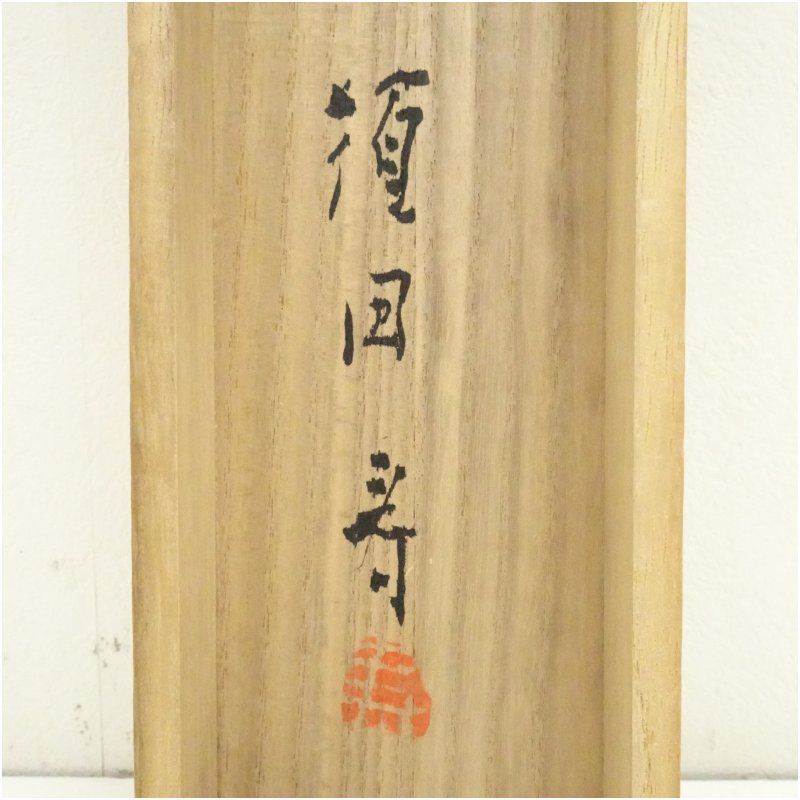 須田寿